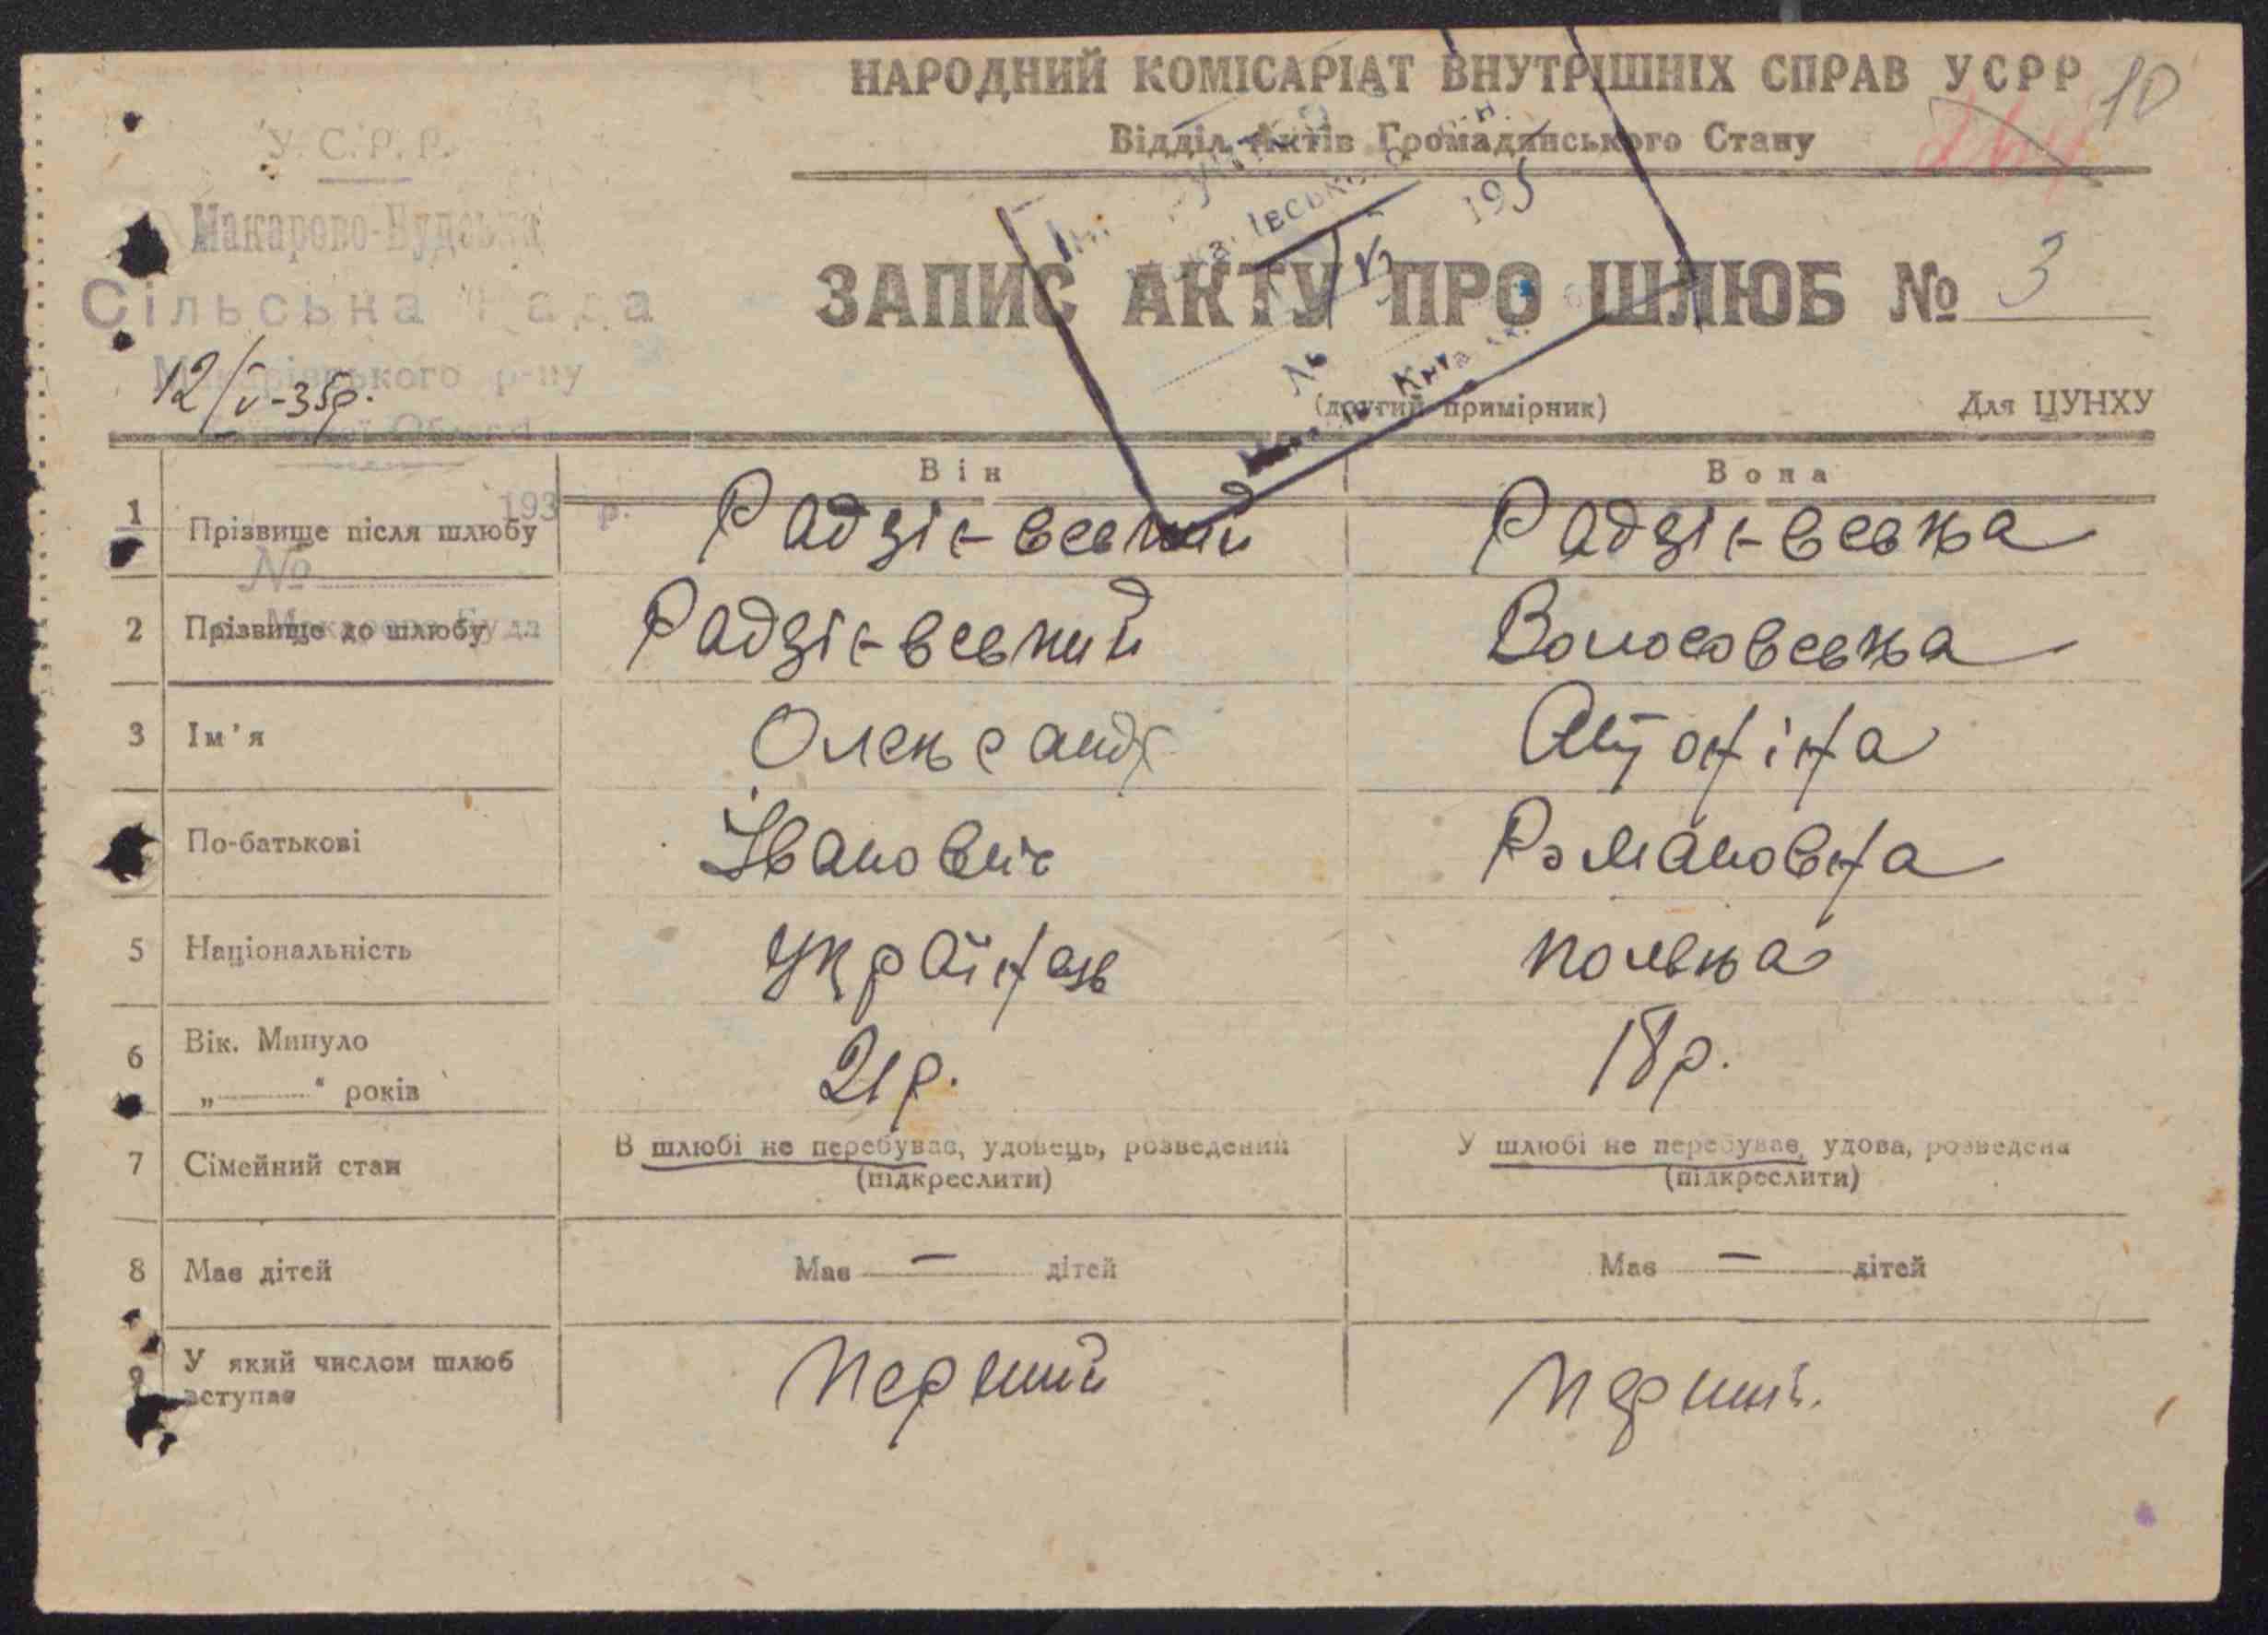 НАРОДНИЙ КОМІСАРІАТ ВНУТРІШНІХ СПРАВ УСРР
10
Відділ Актів Громадянського Стану
У.С.Р.Р.
Макарово-Будська
Сільська Рада
Макарівського р-ну
12/V-35р.
ЗАПИС АКТУ ПРО ШЛЮБ № 3
(другий примірник)
Для ЦУНХУ
Він
Вона
193 р.
1 Прізвище після шлюбу Радзієвський Радзієвська
№
2 Прізвище до шлюбу Радзієвський Волосовська
3 Ім'я Олександр Антоніна
По-батькові Іванович Романовна
5 Національність Українець полька
6 Вік. Минуло „ “ років 21 р. 18 р.
7 Сімейний стан В шлюбі не перебуває, удовець, розведений (підкреслити) У шлюбі не перебуває, удова, розведена (підкреслити)
8 Має дітей Має — дітей Має — дітей
9 У який числом шлюб вступає Перший Перший.